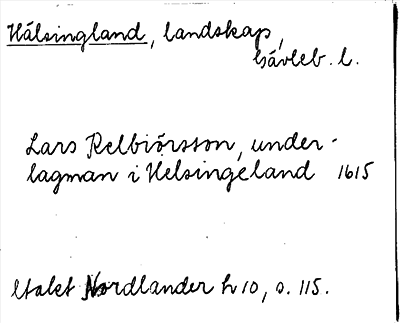 Hälsingland, landskap,
Gävleb. l.
Lars Relbiörsson, under-
lagman i Helsingeland 1615
Nordlander h 10, s. 115.